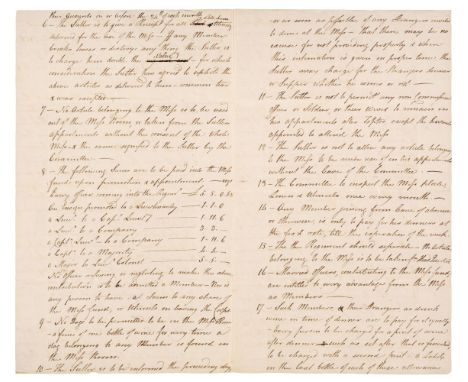 their Accounts on or before the 24th of each month
6 - The Sutler is to give a Receipt for all
delivered for the use of the Mess - If any Member
breaks Glasses or destroys any thing the Sutler is
to charge him double the value - for which
consideration the Sutler has agreed to replace the
above articles as delivered to him - common tear
& wear excepted
7 - No Article belonging to the Mess is to be used
out of the Mess Room or taken from the Sutlers
appartments without the consent of the whole
Mess & the same signified to the Sutler by the
Committee
8 - The following Sums are to be paid into the Mess
fund upon promotion & appointment
Every Officer coming into the Regiment
an Ensign promoted to a Lieutenancy - 1 - 1 - 0
a Lieut to a Capt Lieut - 1 - 11 - 6
a Lieut to a Company
a Capt Lieut to a Company - 1 - 11 - 6
a Capt to a Majority
a Major to Lieut Colonel
No Officer refusing or neglecting to make the above
contribution is to be admitted a Member - Nor is
any person to have a claim to any share of
the Mess fund, or Utensils on leaving the Corps
9 - No Dogs to be permitted to be in the Mess Room
a fine of one bottle of wine for every time a
dog belonging to any Member is found in
the Mess Room
10 - The Sutler is to be informed the preceding day
or as soon as possible of any Stranger invited
to dine at the Mess - that there may be no
excuse for not providing properly & when
this intimation is given in proper time the
Sutler may charge for the Strangers dinner
or Supper whether he comes or not
11 - The Sutler is not to permit any non Commission
Officer or Soldier or their wives to remain in
his appartments after Taptoo except the Servants
appointed to attend the Mess
12 - The Sutler is not to allow any article belonging
to the Mess to be made use of in his appartments
without the leave of the Committee
13 - The Committee to inspect the Mess plate
Linen & Utensils once every month
14 - Every Member going from leave of absence
or otherwise is only to pay for his dinners at
the first rate, till the expiration of the week
15 - If the Regiment should separate - No Article
belonging to the Mess is to be taken
16 - Married Officers contributing to the Mess fund
are entitled to every advantage from the Mess
as Members
17 - Such Members & their Strangers as drink
wine in time of dinner are to pay for it
every person to be charged for a pint of wine
after dinner - such as sit after that is finished
to be charged with a second pint - & Lastly
in the last bottle of each of these allowances